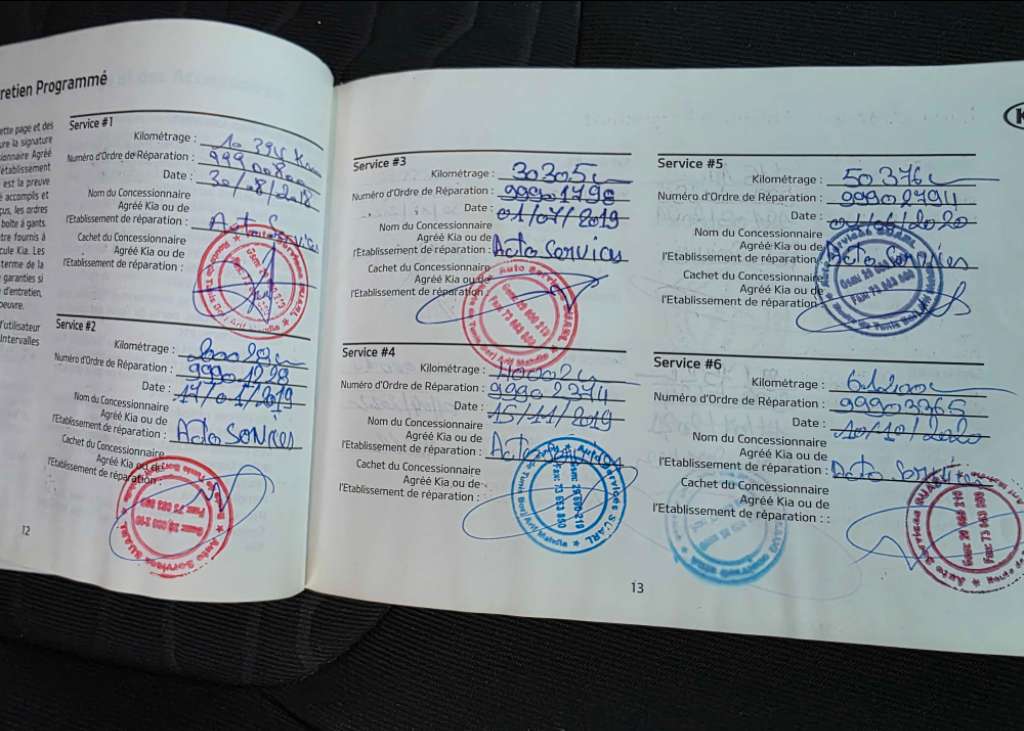 retien Programmé
ette page et des
ure la signature
ionnaire Agréé
'établissement
est la preuve
é accomplis et
çus, les ordres
boîte à gants.
tre fournis à
icule Kia. Les
terme de la
garanties si
d'entretien,
oeuvre.
l'utilisateur
Intervalles
Service #1
Kilométrage :
Numéro d'Ordre de Réparation :
Date : 30/08/2018
Nom du Concessionnaire
Agréé Kia ou de
l'Etablissement de réparation : Auto Services
Cachet du Concessionnaire
Agréé Kia ou de
l'Etablissement de réparation :
Service #2
Kilométrage :
Numéro d'Ordre de Réparation : 99901228
Date : 17/01/2019
Nom du Concessionnaire
Agréé Kia ou de
l'Etablissement de réparation : Auto Services
Cachet du Concessionnaire
Agréé Kia ou de
l'Etablissement de réparation :
12
Service #3
Kilométrage : 30305
Numéro d'Ordre de Réparation : 99901798
Date : 01/07/2019
Nom du Concessionnaire
Agréé Kia ou de
l'Etablissement de réparation : Auto Services
Cachet du Concessionnaire
Agréé Kia ou de
l'Etablissement de réparation :
Auto Services SUARL
Service #4
Kilométrage :
Numéro d'Ordre de Réparation : 99902374
Date : 15/11/2019
Nom du Concessionnaire
Agréé Kia ou de
l'Etablissement de réparation : Auto
Cachet du Concessionnaire
Agréé Kia ou de
l'Etablissement de réparation :
Auto Services SUARL
13
Service #5
Kilométrage : 50376
Numéro d'Ordre de Réparation : 99902794
Date :
Nom du Concessionnaire
Agréé Kia ou de
l'Etablissement de réparation : Auto Services
Cachet du Concessionnaire
Agréé Kia ou de
l'Etablissement de réparation
Service #6
Kilométrage :
Numéro d'Ordre de Réparation : 99903365
Date : 10/10/2020
Nom du Concessionnaire
Agréé Kia ou de
l'Etablissement de réparation : Auto Services
Cachet du Concessionnaire
Agréé Kia ou de
l'Etablissement de réparation : :